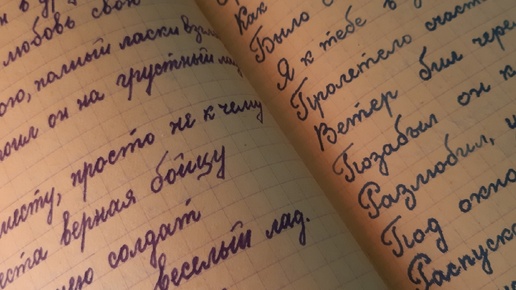 любовь свою
ою, полный ласки взгляд
он на грустный лад
месту, просто не к чему
еста верная бойцу
солдат
веселый лад.
Как
Было
Я к тебе в
Пролетело счастье
Ветер был
Позабыл он к
Разлюбил, и
Под окно
Распуска